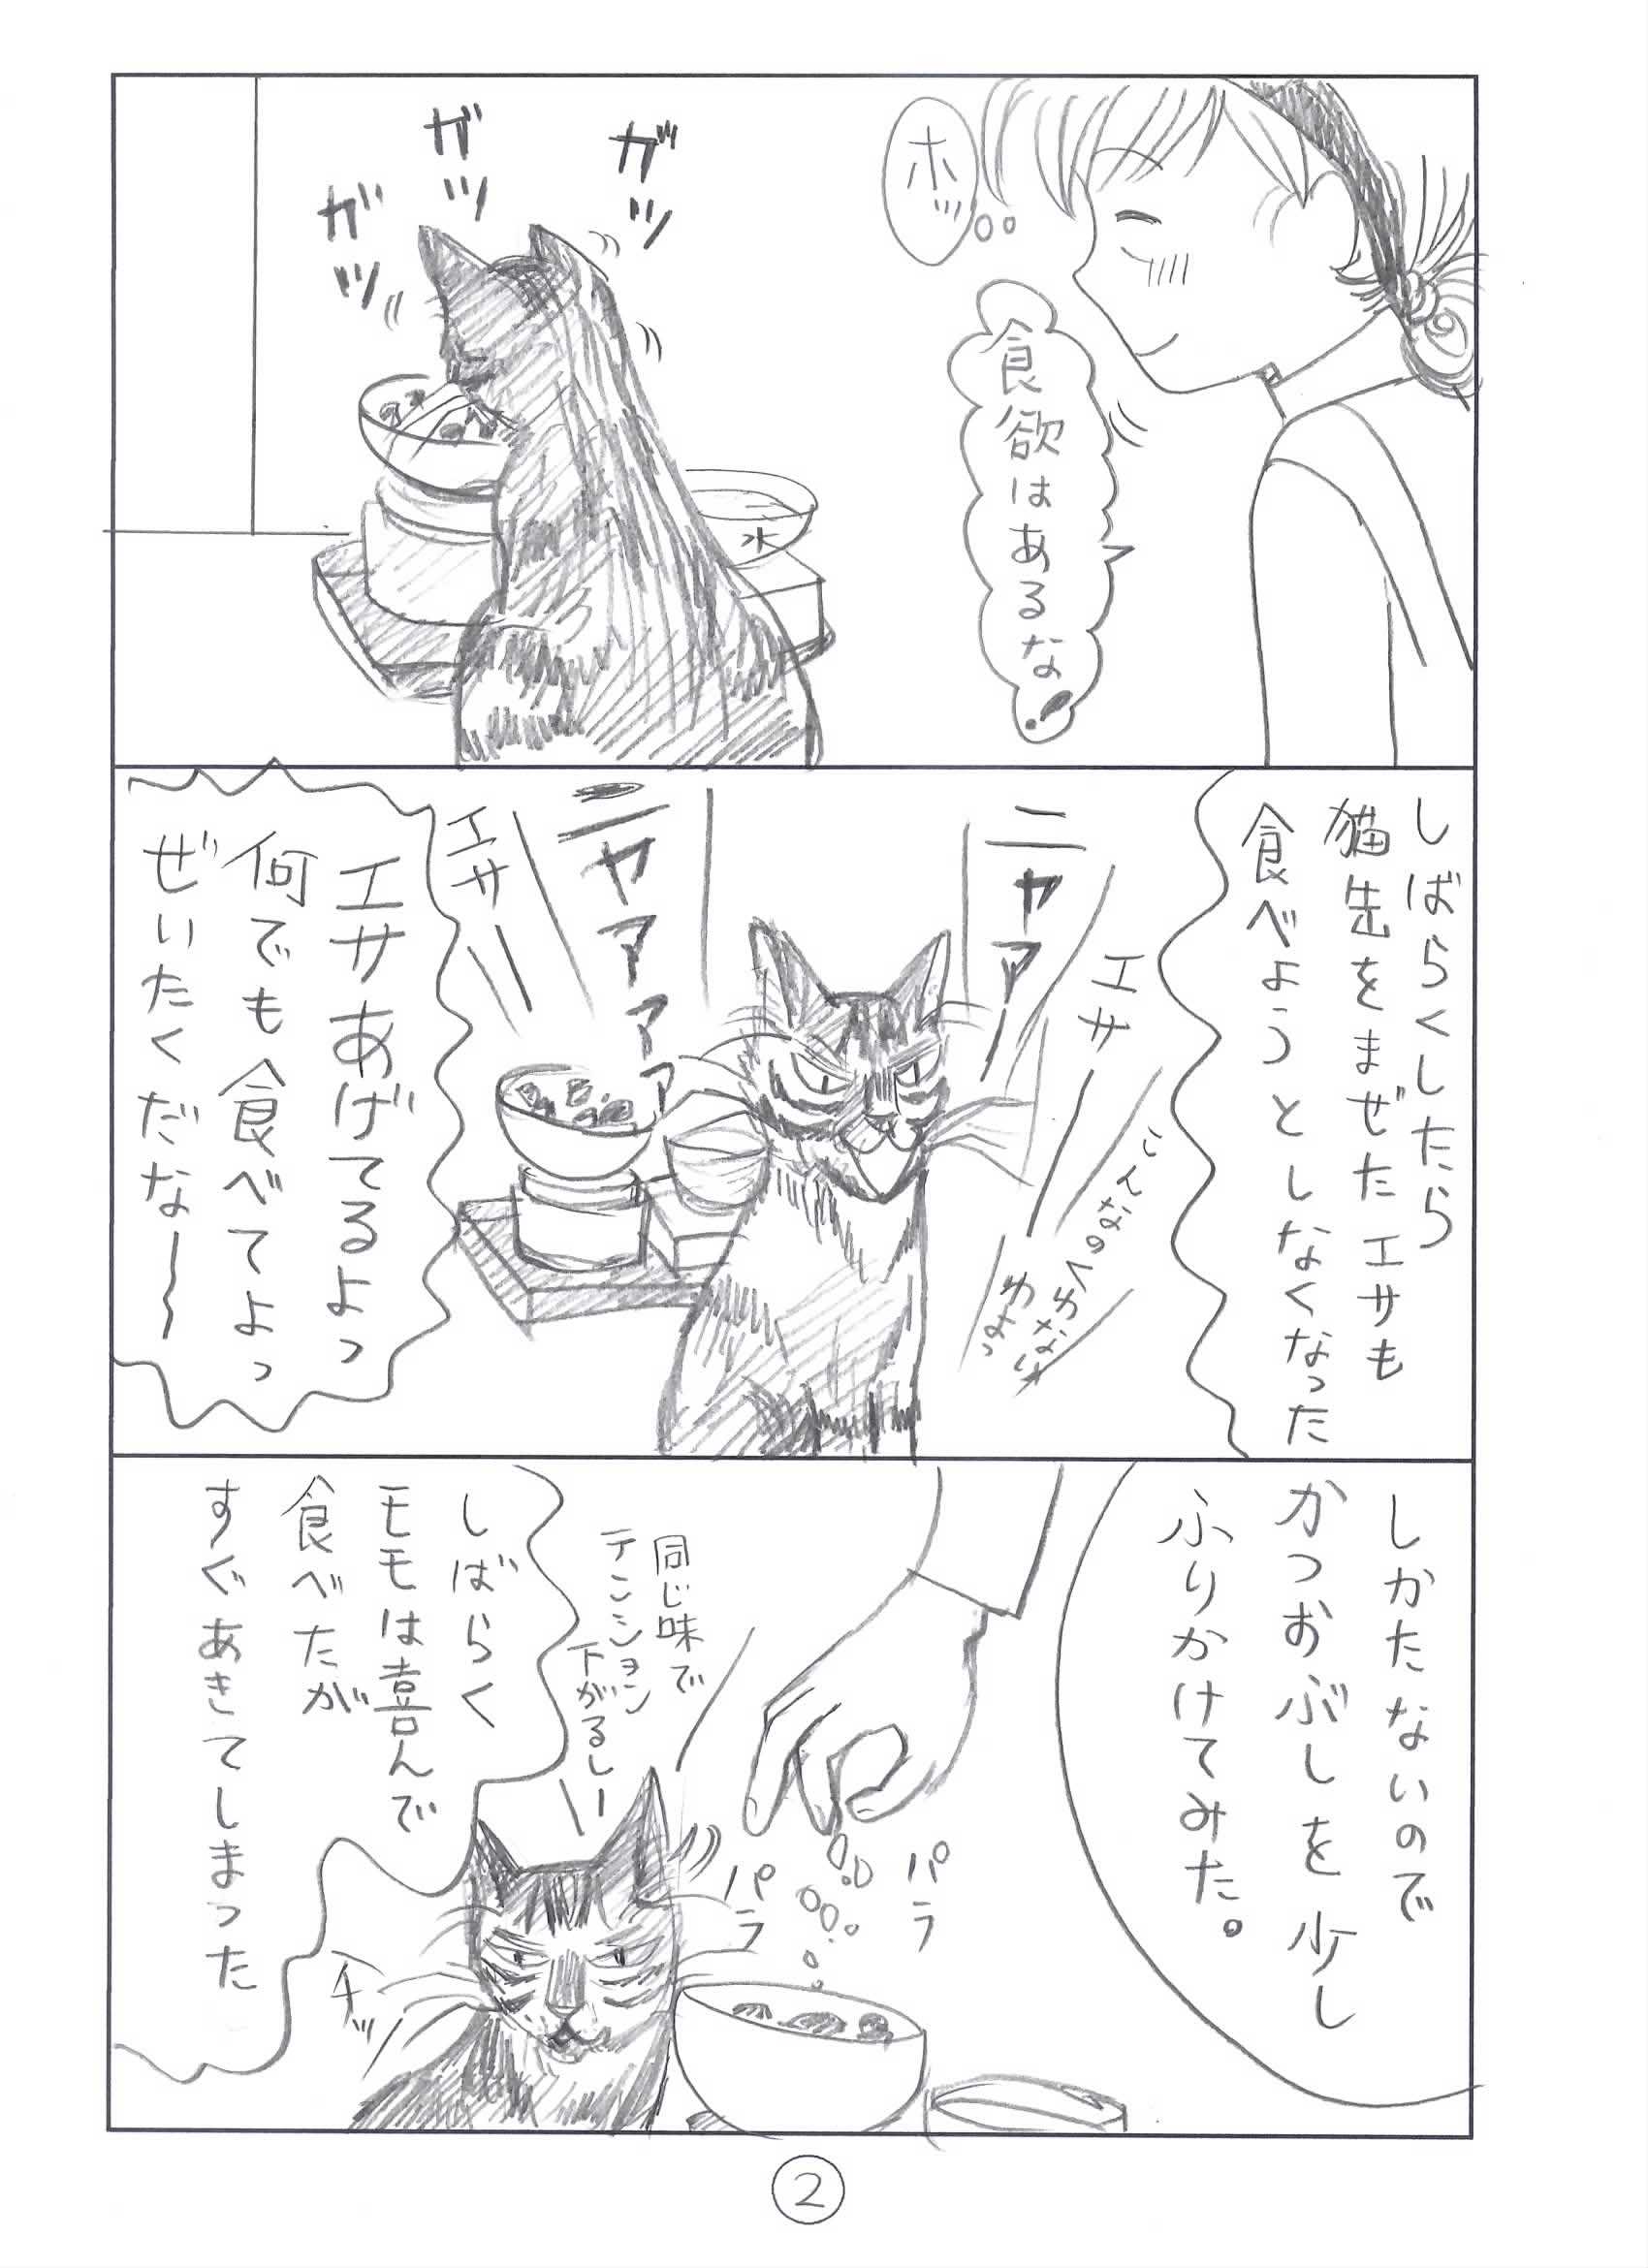 ホッ
食欲はあるな!
ガッ
ガッ
ガッ
水
しばらくしたら
猫缶をまぜたエサも
食べようとしなくなった
ニャアー
エサー
こんなのくわない
わよっ
ニャアアアアア
エサー
エサあげてるよっ
何でも食べてよっ
ぜいたくだな〜
しかたないので
かつおぶしを少し
ふりかけてみた。
パラ
パラ
同じ味で
テンション
下がるしー
チッ
しばらく
モモは喜んで
食べたが
すぐあきてしまった
2